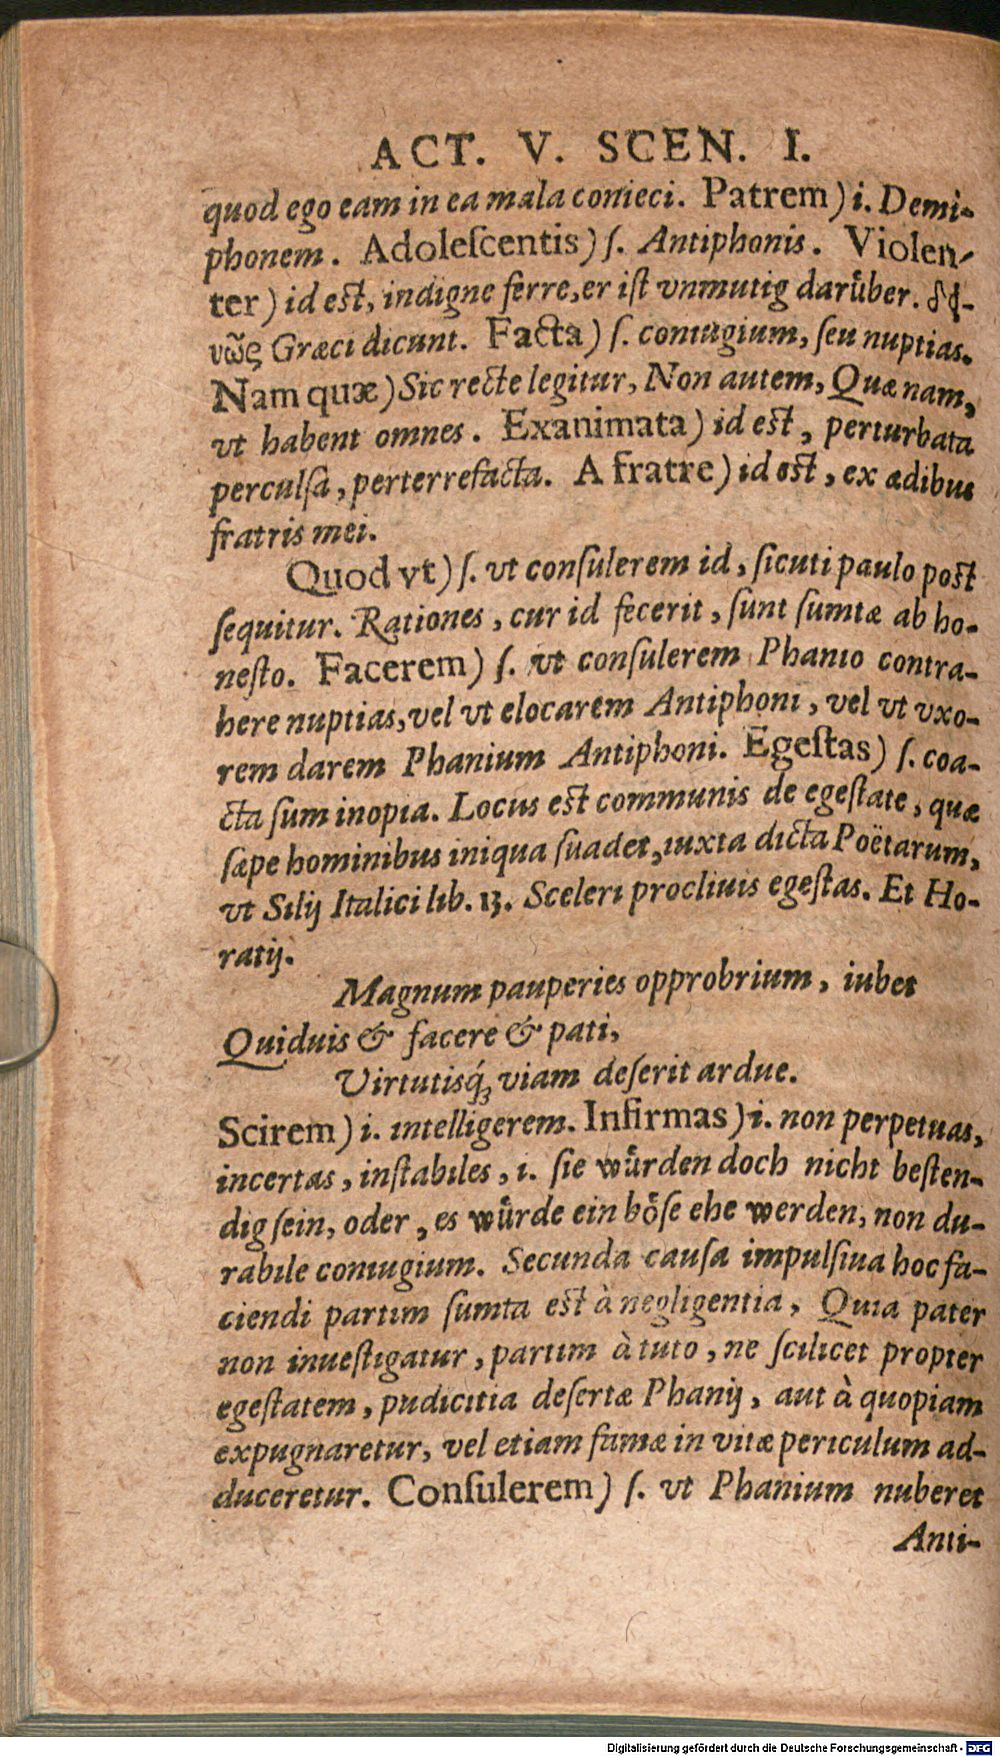 ACT. V. SCEN. I.
quod ego eam in ea mala conieci. Patrem) i. Demi-
phonem. Adoleſcentis) ſ. Antiphonis. Violen-
ter) id eſt, indigne ferre, er iſt vnmutig darůber.
νῶς Græci dicunt. Facta) ſ. coniugium, ſeu nuptias.
Nam quæ) Sic recte legitur, Non autem, Quæ nam,
vt habent omnes. Exanimata) id eſt, perturbata
perculſa, perterrefacta. A fratre) id eſt, ex ædibus
fratris mei.
Quod vt) ſ. vt conſulerem id, ſicuti paulo poſt
ſequitur. Rationes, cur id fecerit, ſunt ſumtæ ab ho-
neſto. Facerem) ſ. vt conſulerem Phanio contra-
here nuptias, vel vt elocarem Antiphoni, vel vt vxo-
rem darem Phanium Antiphoni. Egeſtas) ſ. coa-
cta ſum inopia. Locus eſt communis de egeſtate, quæ
ſæpe hominibus iniqua ſuadet, iuxta dicta Poëtarum,
vt Silij Italici lib. 13. Sceleri procliuis egeſtas. Et Ho-
ratij.
Magnum pauperies opprobrium, iubet
Quiduis & facere & pati,
Virtutisq́ꝫ viam deſerit ardue.
Scirem) i. intelligerem. Infirmas) i. non perpetuas,
incertas, inſtabiles, i. ſie wůrden doch nicht beſten-
dig ſein, oder, es wůrde ein bo̊ſe ehe werden, non du-
rabile coniugium. Secunda cauſa impulſiua hoc fa-
ciendi partim ſumta eſt à negligentia, Quia pater
non inueſtigatur, partim à tuto, ne ſcilicet propter
egeſtatem, pudicitia deſertæ Phanij, aut à quopiam
expugnaretur, vel etiam famæ in vitæ periculum ad-
duceretur. Conſulerem) ſ. vt Phanium nuberet
Anti-
Digitalisierung gefördert durch die Deutsche Forschungsgemeinschaft - DFG